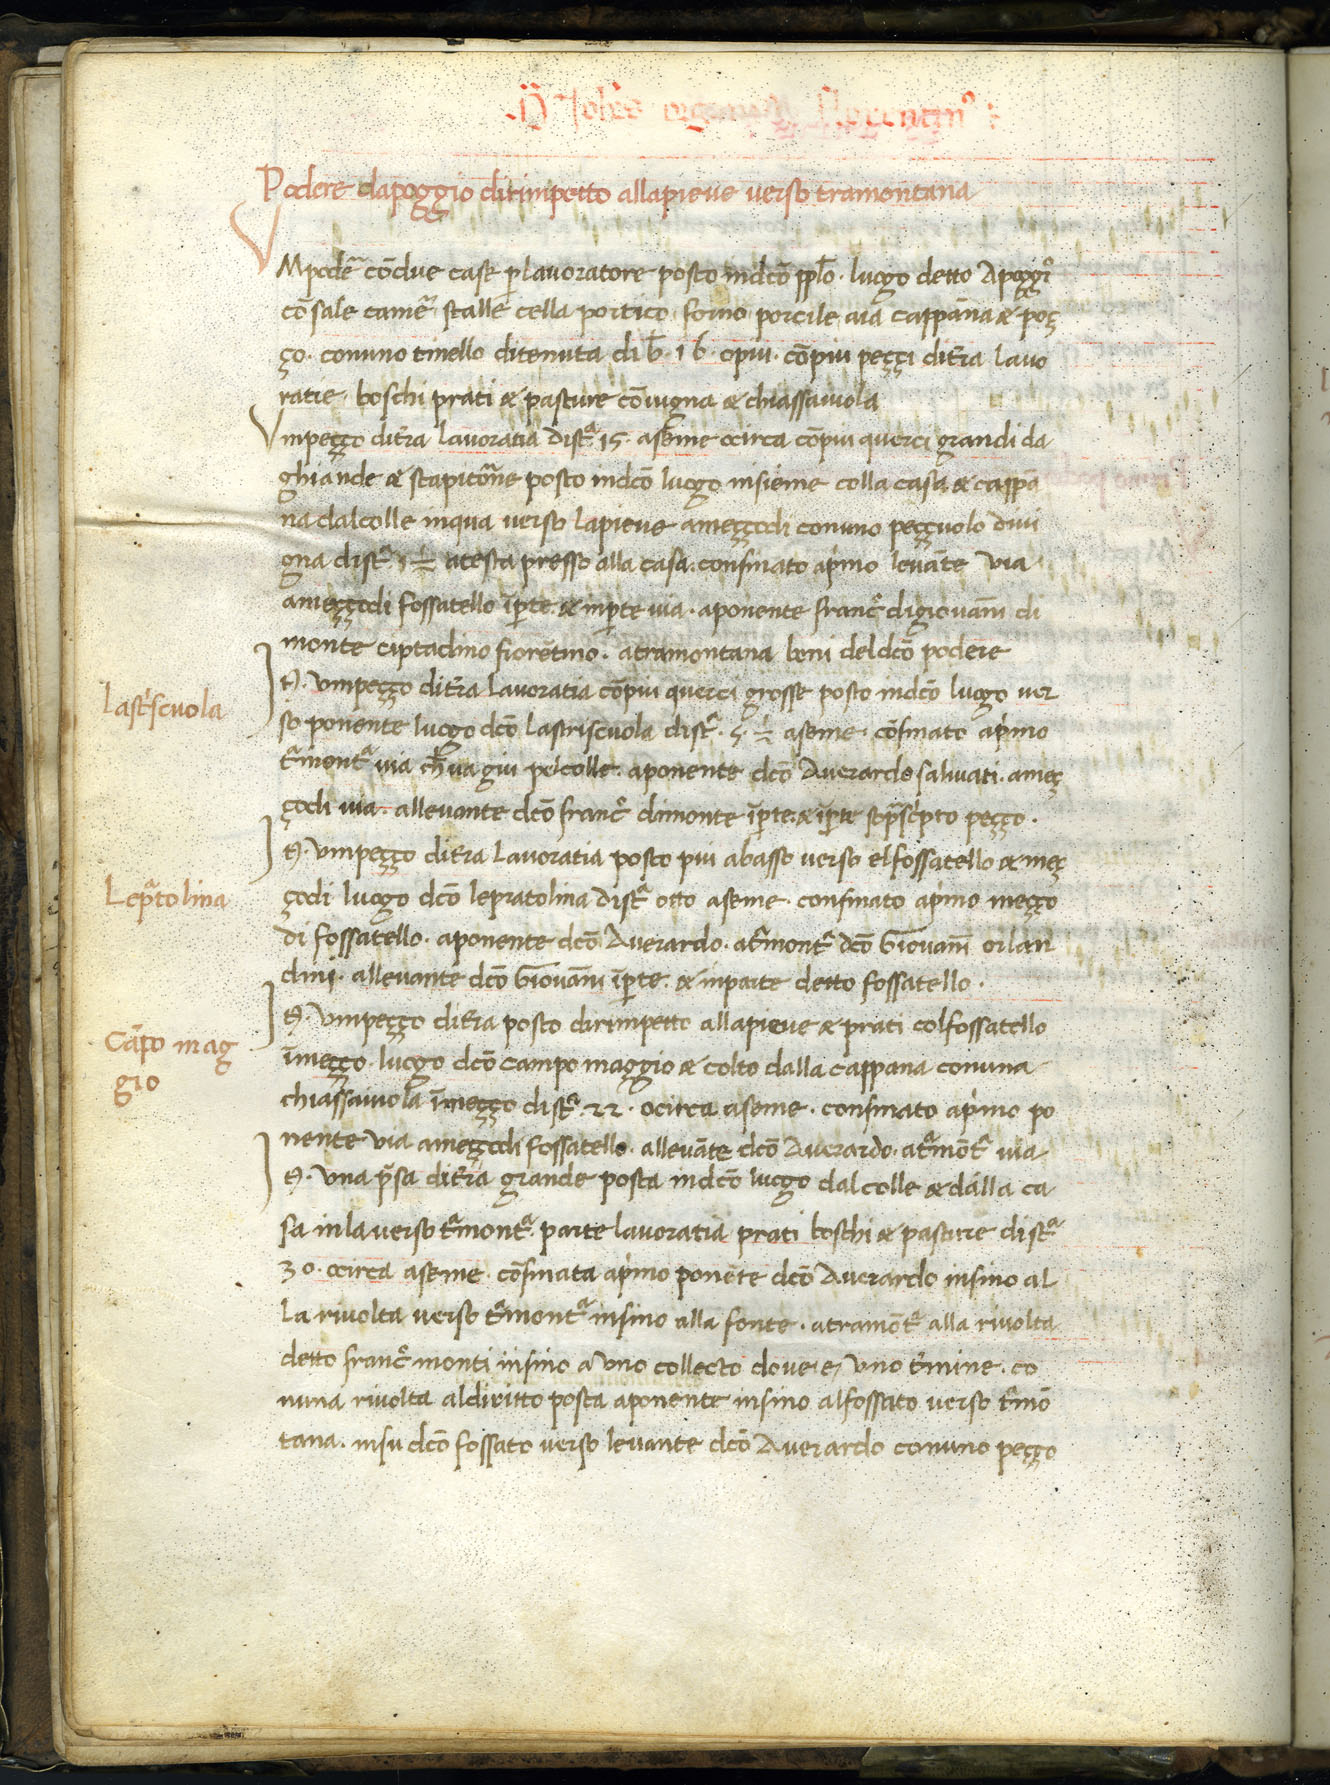 Podere dapoggio dirimpetto allapieve verso tramontana
VMpodẽ cõdue case p lavoratore posto indcõ pplo · luogo detto Apoggi͂
cõsale camẽ stalle cella portico forno porcile aia cappãna & poç
ço · conuno tinello ditenuta di b · 16 · opiu · cõpiu peççi ditr̃a lavo
ratie · boschi prati & pasture cõvigna & chiassaiuola
Vmpeçço ditr̃a lavoratia distª 15 · aseme ocirca cõpiu querci grandi da
ghiande & scapitoẽne posto indcõ luogo insieme colla casa & cappã
na dalcolle inqua verso lapieve ameççodi conuno peççuolo divi
gna distª 1 1/2 atesta presso alla casa. confinato apimo levãte via
ameççodi fossatello ĩpte & inpte via · aponente franc̃ digiovanĩ di
monte ciptadino fiorẽtino · atramontana beni deldcõ podere
Lastiscuola
It. Vmpeçço ditr̃a lavoratia cõpiu querci grosse posto indcõ luogo ver
so ponente luogo dcõ lastriscuola distª · 5 1/2 aseme · cõfinato apimo
tªmontª via ch̃ va giu pelcolle. aponente dcõ Averardo salviati · ameç
çodi via · allevante dcõ franc̃ dimonte ĩpte & ĩpte sopªscipto peçço ·
Lepªtolina
It. Vmpeçço ditr̃a lavoratia posto piu abasso verso elfossatello & meç
çodi luogo dcõ lepratolina distª otto aseme · confinato apimo meçço
di fossatello · aponente dcõ Averardo · atªmontª dcõ Giovanĩ orlan
dini · allevante dcõ Giovanĩ ĩpte · & inparte detto fossatello ·
Cãpo mag
gio
It. Vmpeçço ditr̃a posto dirimpetto allapieve & prati colfossatello
ĩmeçço luogo dcõ campo maggio & colto dalla cappana conuna
chiassaiuola ĩmeçço distª 22 · ocirca aseme · confinato apimo po
nente via ameçodi fossatello · allevãte dcõ Averardo · atªmõtª via
It. Vna pªsa ditr̃a grande posta indcõ luogo dalcolle & dalla ca
sa inla verso tªmontª parte lavoratia prati boschi & pasture distª
30 · ocirca aseme · cõfinata apimo ponẽte dcõ Averardo insino al
la rivolta verso tªmontª insino alla fonte · atramõtª alla rivolta
detto franc̃ monti insino a uno collecto dove e, uno t̃mine · co
nuna rivolta aldiritto posta aponente insino alfossato verso tªmõ
tana · insu dcõ fossato verso levante dcõ Averardo conuno peçço